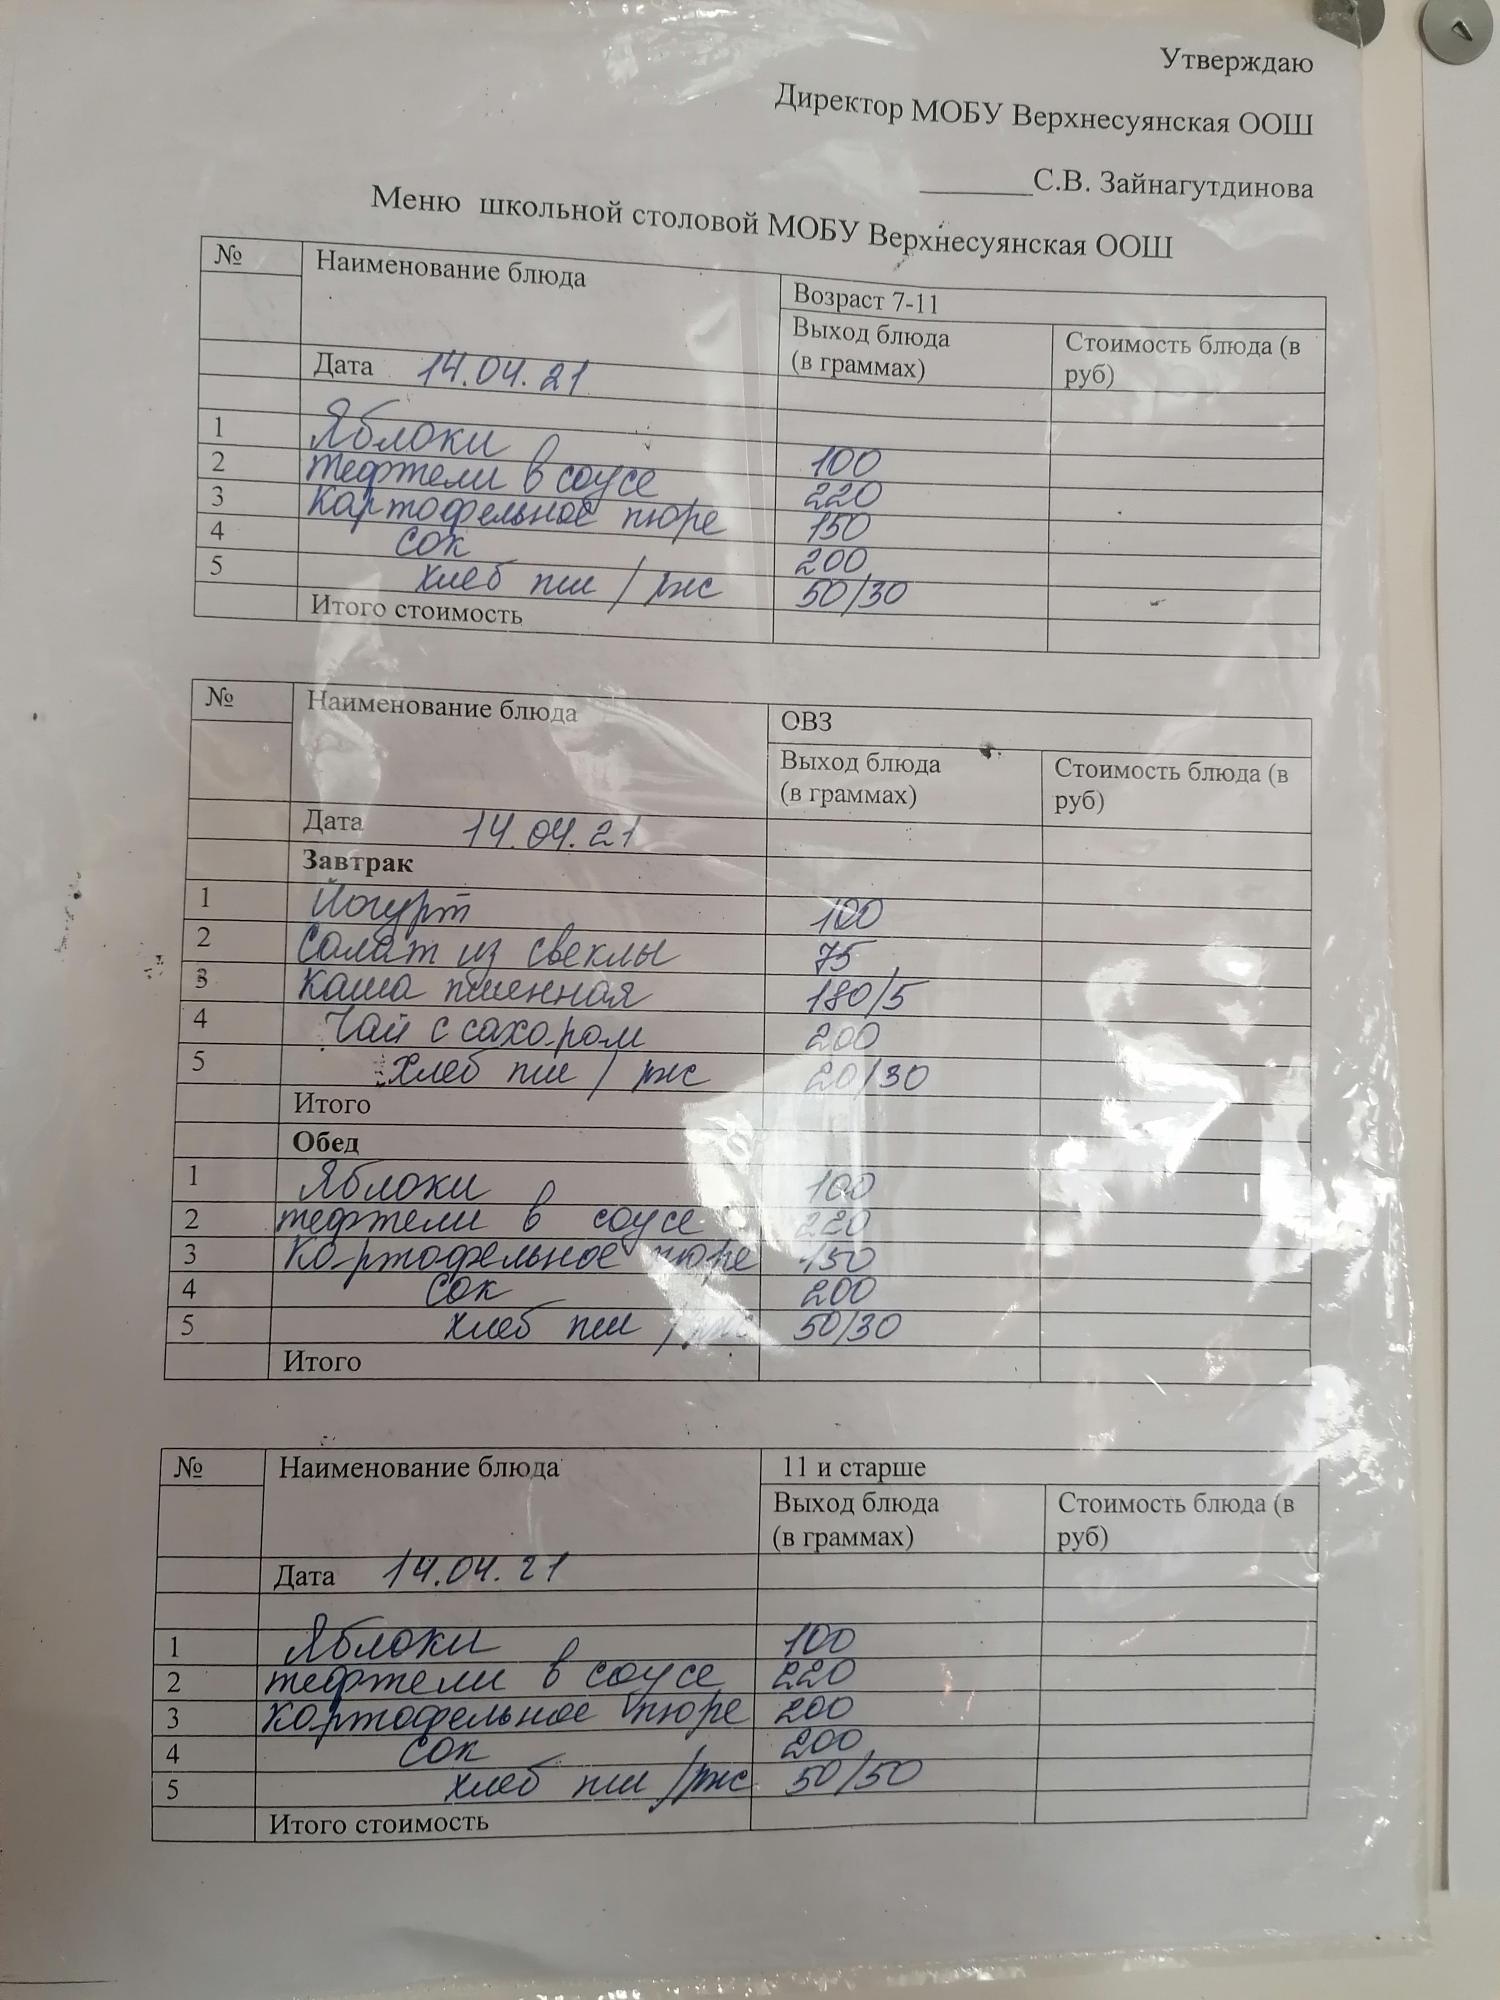 Утверждаю
Директор МОБУ Верхнесуянская ООШ
________С.В. Зайнагутдинова
Меню школьной столовой МОБУ Верхнесуянская ООШ
№ Наименование блюда Возраст 7-11
Выход блюда (в граммах) Стоимость блюда (в руб)
Дата 14.04.21
1 Яблоки 100
2 тефтели в соусе 220
3 Картофельное пюре 150
4 сок 200
5 хлеб пш / рж 50/30
Итого стоимость
№ Наименование блюда ОВЗ
Выход блюда (в граммах) Стоимость блюда (в руб)
Дата 14.04.21
Завтрак
1 Йогурт 100
2 Салат из свеклы 75
3 Каша пшенная 180/5
4 Чай с сахаром 200
5 Хлеб пш / ржс 20/30
Итого
Обед
1 Яблоки 100
2 тефтели в соусе 220
3 Картофельное пюре 150
4 сок 200
5 хлеб пш / ржс 50/30
Итого
№ Наименование блюда 11 и старше
Выход блюда (в граммах) Стоимость блюда (в руб)
Дата 14.04.21
1 Яблоки 100
2 тефтели в соусе 220
3 Картофельное пюре 200
4 сок 200
5 хлеб пш /ржс 50/50
Итого стоимость